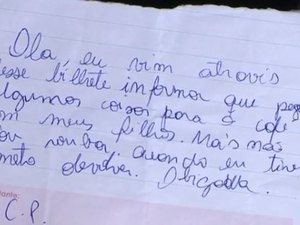 Olá, eu vim atravis
desse bilhete informar que peg
algumas coisas para o café
com meus filhos. Mais não
vou roubar, quando eu tive
meto devolver. Obrigada.
C.P.